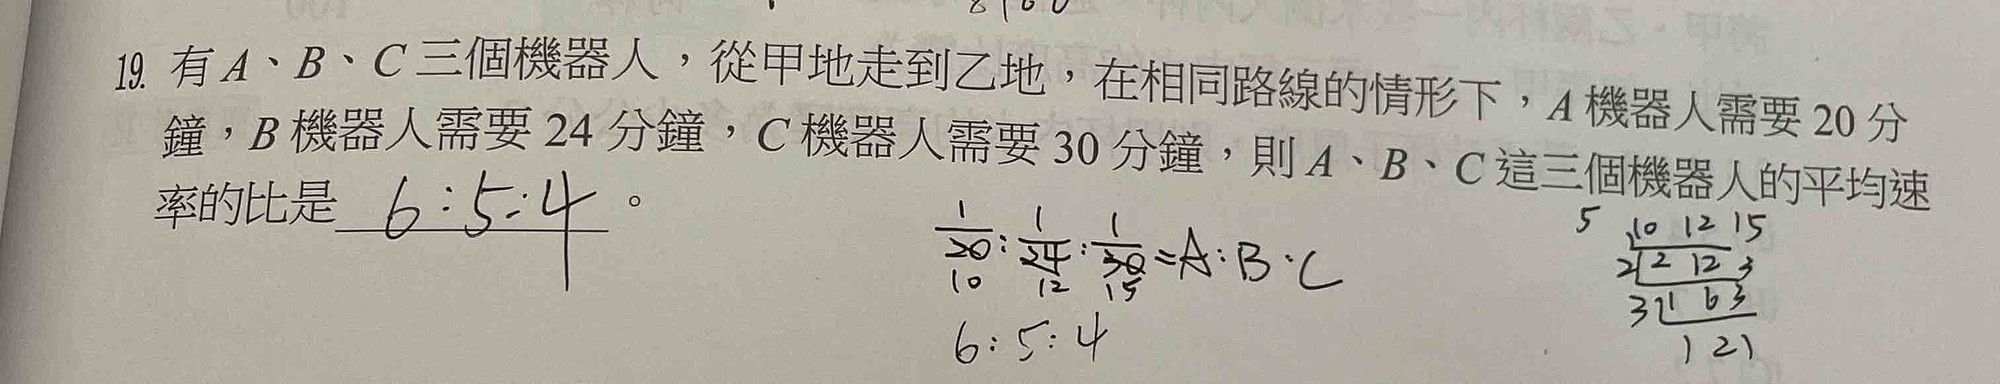 19. 有 A、B、C 三個機器人，從甲地走到乙地，在相同路線的情形下，A 機器人需要 20 分
鐘，B 機器人需要 24 分鐘，C 機器人需要 30 分鐘，則 A、B、C 這三個機器人的平均速
率的比是 6:5:4 。
1/20 : 1/24 : 1/30 = A:B:C
10 12 15
6:5:4
5 10 12 15
2 2 12 3
3 1 6 3
1 2 1